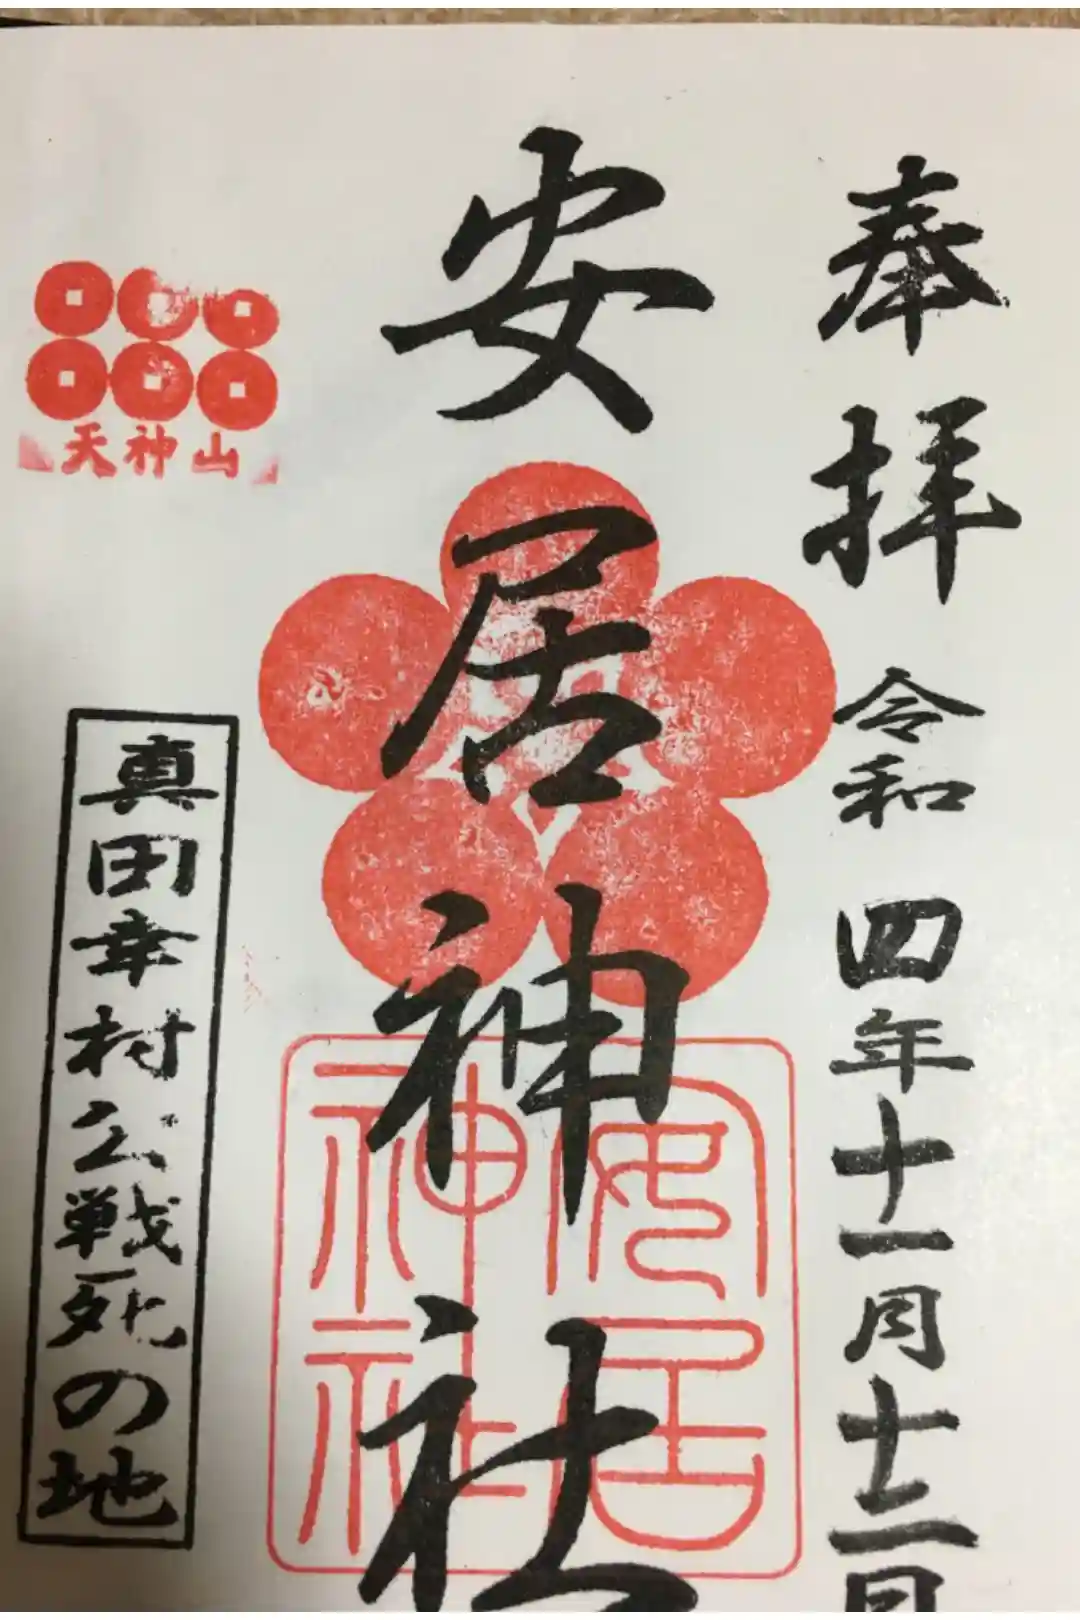 奉拝 令和四年十一月十二日
安居神社
安居
神社
天神山
真田幸村公戦死の地